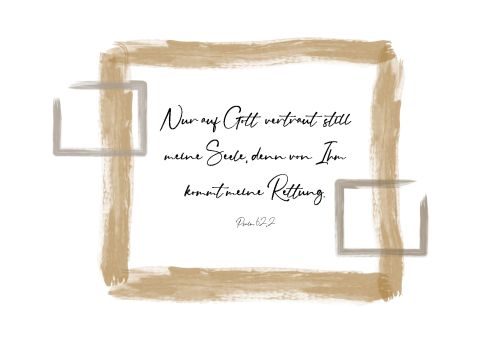 Nur auf Gott vertraut still
meine Seele, denn von Ihm
kommt meine Rettung.
Psalm 62,2